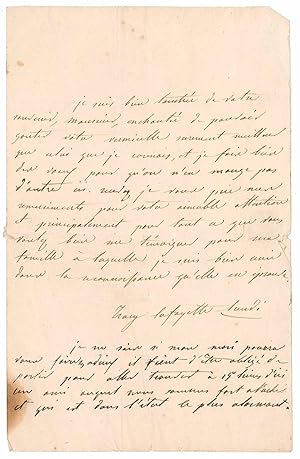 je suis bien touchée de votre
souvenir, monsieur, enchantée de pouvoir
gouter votre vermicelle surement meilleur
que celui que je connois, et je fais bien
des voeux pour qu'on n'en mange pas
d'autre ici. je vous prie mes
remerciments pour votre aimable attention
et principalement pour tout ce que vous
voulez bien me témoigner pour ma
famille à laquelle je suis bien unie
dans la reconnoissance qu'elle en éprouve.
Tracy Lafayette Lundi
je ne sais si mon mari pourra
vous il vient d'être obligé de
partir pour aller trouver à 15 lieues d'ici
un ami auquel nous sommes fort attachés
et qui est dans l'état le plus alarmant.